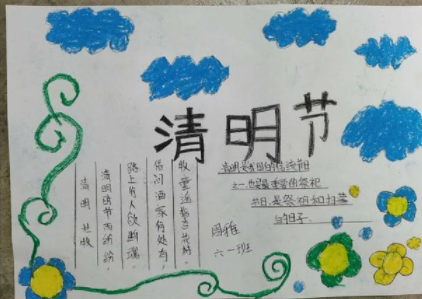 清明节
清明 杜牧
清明时节雨纷纷，
路上行人欲断魂。
借问酒家何处有，
牧童遥指杏花村。
清明是我国的传统节日
之一也是最重要的祭祀
节日,是祭祖和扫墓
的日子.
六一班